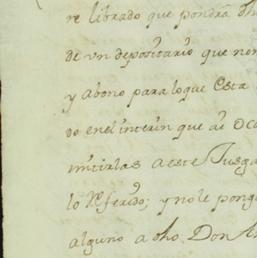 re librado que pondrá dho
de vn depositario que nom
y abono para loque esta
do enel interin que se oca
mitirlas a este Juzga
lo Referido; y nole ponga
alguno a dho, Don An